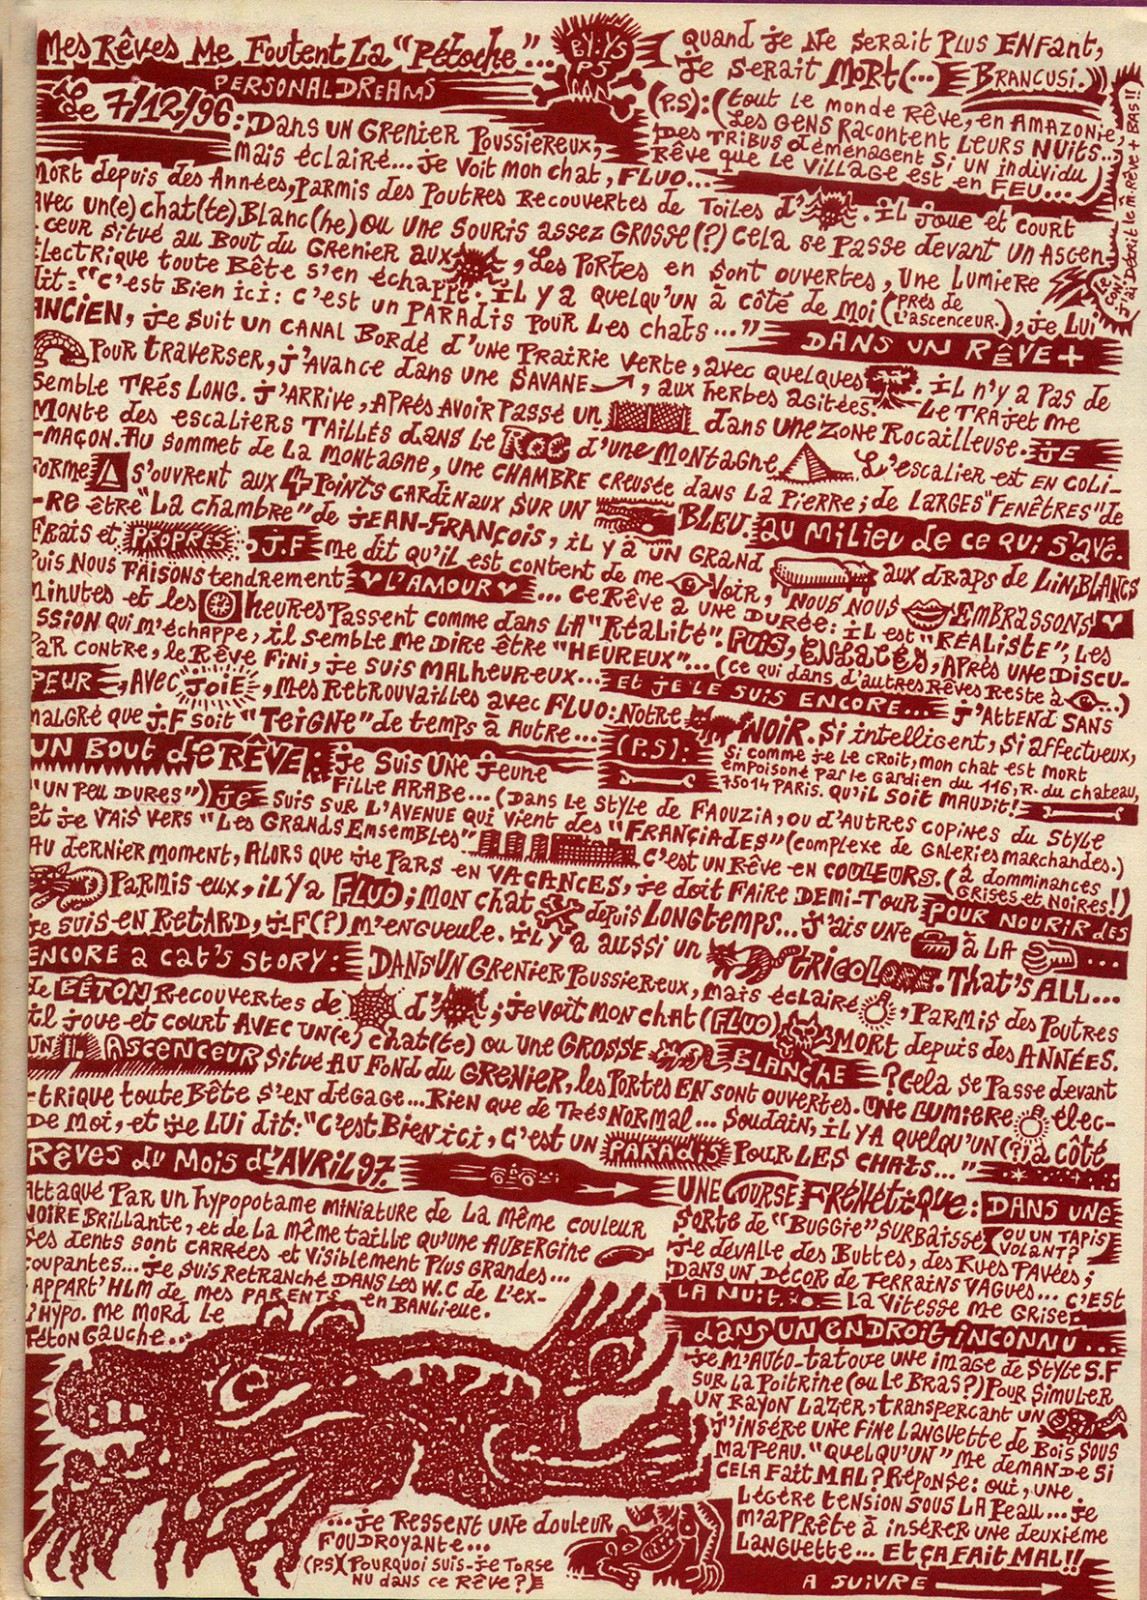 Mes Rêves Me Foutent La "Pétoche"...
BY.YS
P5
PERSONAL DREAMS
Quand je Ne Serait Plus ENFant,
je serait MORT(...) BRANCUSI.)))
(P.S):(tout le monde Rêve, en AMAZONie,
Les GENS Racontent Leurs Nuits...
Des TRIBUS déménagent si un individu
Rêve que le village est en FEU...)
Le 7/12/96: Dans un GReNier Poussiereux,
mais éclairé... je voit mon chat, FLUO...
Mort depuis des Années, parmis des Poutres Recouvertes de Toiles d'. il joue et court
avec un(e) chat(te) Blanc(he) ou une Souris assez GROSSE(?) Cela se passe devant un Ascen-
ceur situé au Bout du Grenier aux , Les Portes en sont ouvertes, une Lumiere
électrique toute Bête s'en échappe. il y a quelqu'un à côté de Moi (près de l'ascenceur.), je Lui
dit: "C'est Bien ici: c'est un PARADIS pour Les chats..."
DANS UN RÊVE +
ANCIEN, je suit un CANAL Bordé d'une Prairie verte, avec quelques . il n'y a pas de
Pour traverser, j'avance dans une SAVANE, aux herbes agitées. Le Trajet me
Semble Trés Long. j'arrive, aprés avoir passé un dans une zone Rocailleuse. je
Monte des escaliers Taillés dans le ROC d'une Montagne. L'escalier est en coli-
-maçon. Au sommet de la Montagne, une chambre creusée dans la Pierre; de Larges "Fenêtres" de
Forme s'ouvrent aux 4 Points cardinaux sur un BLEU. au milieu de ce qui s'avé-
-Re être "La chambre" de JEAN-FRANÇOIS, il y a un grand aux draps de Lin Blancs
Frais et PROPRES. J.F me dit qu'il est content de me voir, nous nous EMBRASSONS
Puis nous faisons tendrement L'AMOUR... ce Rêve a une Durée: il est "RÉALISTE", les
minutes et les heures passent comme dans la "Réalité". Puis, enlacés, après une discu-
ssion qui m'échappe, il semble me dire être "HEUREUX"... (ce qui dans d'autres Rêves reste à ...)
Par contre, le Rêve fini, je suis malheureux... Et je le suis encore... j'attend sans
PEUR, avec JOIE, mes retrouvailles avec Fluo: notre NOIR. Si intelligent, si affectueux,
malgré que J.F soit "Teigne" de temps à autre...
(P.S): Si comme je le croit, mon chat est mort
empoisoné par le gardien du 116, R. du chateau,
75014 PARIS. qu'il soit maudit!
UN BOUT de RÊVE: je suis une jeune
Fille ARABE... (Dans le style de Faouzia, ou d'autres copines du style
"un peu dures") je suis sur l'avenue qui vient des "Françiades" (complexe de galeries marchandes.)
et je vais vers "Les Grands Emsembles". C'est un Rêve en couleurs. (à domminances grises et noires!)
Au dernier moment, alors que je pars en vacances, je doit faire demi-tour pour nourir des
Parmis eux, il y a FLUO; mon chat depuis longtemps... j'ais une à la ...
je suis en retard, J-F(?) m'engueule. il y a aussi un tricolore. That's ALL...
ENCORE a cat's story: Dans un grenier poussiereux, mais éclairé, parmis des poutres
de BÉTON recouvertes de d'; je voit mon chat (FLUO) MORT depuis des ANNÉES.
il joue et court avec un(e) chat(te) ou une grosse BLANCHE? Cela se passe devant
UN ASCENCEUR situé au fond du grenier, les portes en sont ouvertes. Une lumiere élec-
-trique toute Bête s'en dégage... Rien que de très normal... Soudain, il y a quelqu'un(?) à côté
De moi, et je lui dit: "C'est Bien ici, c'est un PARADIS pour les chats..."
Rêves du Mois d'AVRIL 97.
Attaqué par un hypopotame miniature de la même couleur
NOIRE BRILLANTE, et de la même taille qu'une AUBERGINE
Ses dents sont carrées et visiblement plus grandes...
coupantes... je suis retranché dans les W.C de l'ex-
appart' HLM de mes parents en banlieue.
L'hypo. me mord le
Téton gauche...
...je ressent une douleur
foudroyante...
(P.S)(Pourquoi suis-je torse
nu dans ce rêve?)
UNE COURSE FRÉNÉTIQUE: DANS UNE
sorte de "Buggie" surbaissé (ou un tapis volant?)
je dévalle des Buttes, des Rues Pavées;
Dans un décor de Terrains vagues... c'est
LA NUIT. La vitesse me grise.
dans un endroit inconnu...
je m'auto-tatoue une image de style S.F
sur la poitrine (ou le bras?) pour simuler
un rayon lazer, transperçant un
j'insére une fine languette de bois sous
ma peau. "Quelqu'un" me demande si
cela fait mal? Réponse: oui, une
légère tension sous la peau... je
m'apprête à insérer une deuxiéme
languette... Et ça fait MAL!!
A SUIVRE